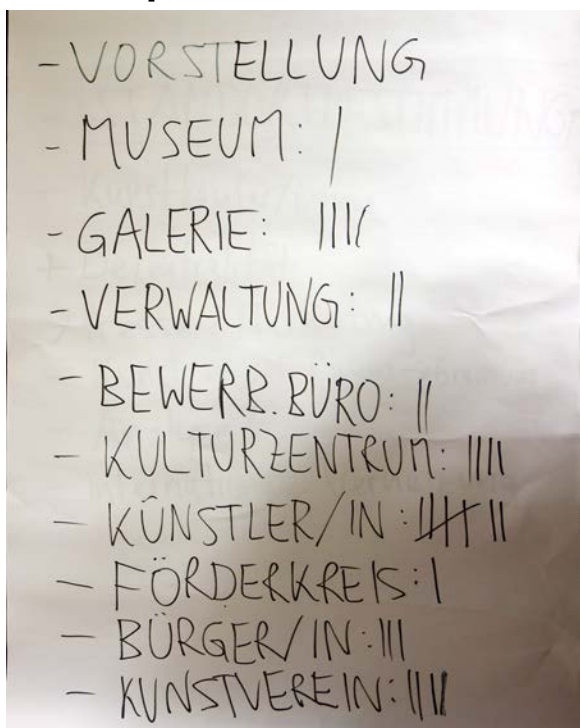 - VORSTELLUNG
- MUSEUM: |
- GALERIE: ||||
- VERWALTUNG: ||
- BEWERB. BÜRO: ||
- KULTURZENTRUM: ||||
- KÜNSTLER/IN: |||| ||
- FÖRDERKREIS: |
- BÜRGER/IN: |||
- KUNSTVEREIN: ||||